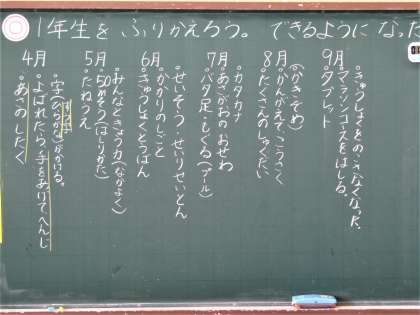 1年生をふりかえろう。できるようになった
4月
・字(ひらがな)がかける。
すうじ
・よばれたら、手をあげてへんじ
・あさのしたく
5月
・みんなときょう力(なかよく)
・50mそう(はしりかた)
・たねうえ
6月
・せいそう・せいりせいとん
・かかりのしごと
・きゅうしょくとうばん
7月
・カタカナ
・あさがおのおせわ
・バタ足・もぐる(プール)
8月
(かきぞめ)
・かんがえて、こうこく
・たくさんのしゅくだい
9月
・きゅうしょくをのこさなくなった。
・マラソンコースをはしる。
・タブレット